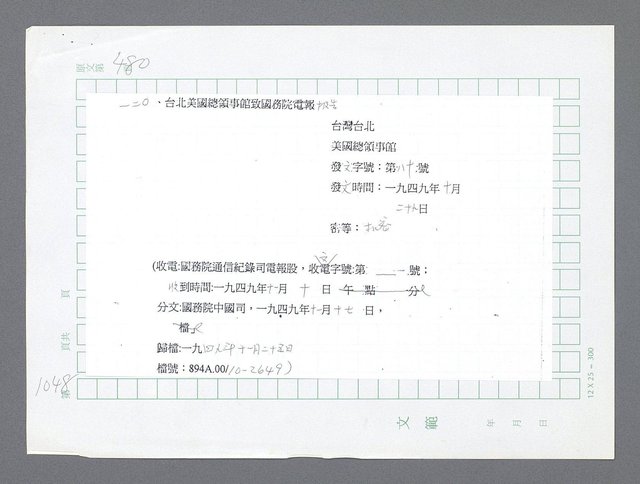 原文第 480
一二〇、台北美國總領事館致國務院電報 報告
台灣台北
美國總領事館
發文字號：第八十號
發文時間：一九四九年十月
二十九日
密等：機密
(收電:國務院通信紀錄司電報股，收電文字號:第 一號；
收到時間:一九四九年十一月 十 日 午 點 分
分文:國務院中國司，一九四九年十一月十七日，
檔
歸檔:一九四九年十一月二十五日
檔號：894A.00/10-2649)
頁
頁共
1048
第
12 X 25 = 300
文 範
年 月 日